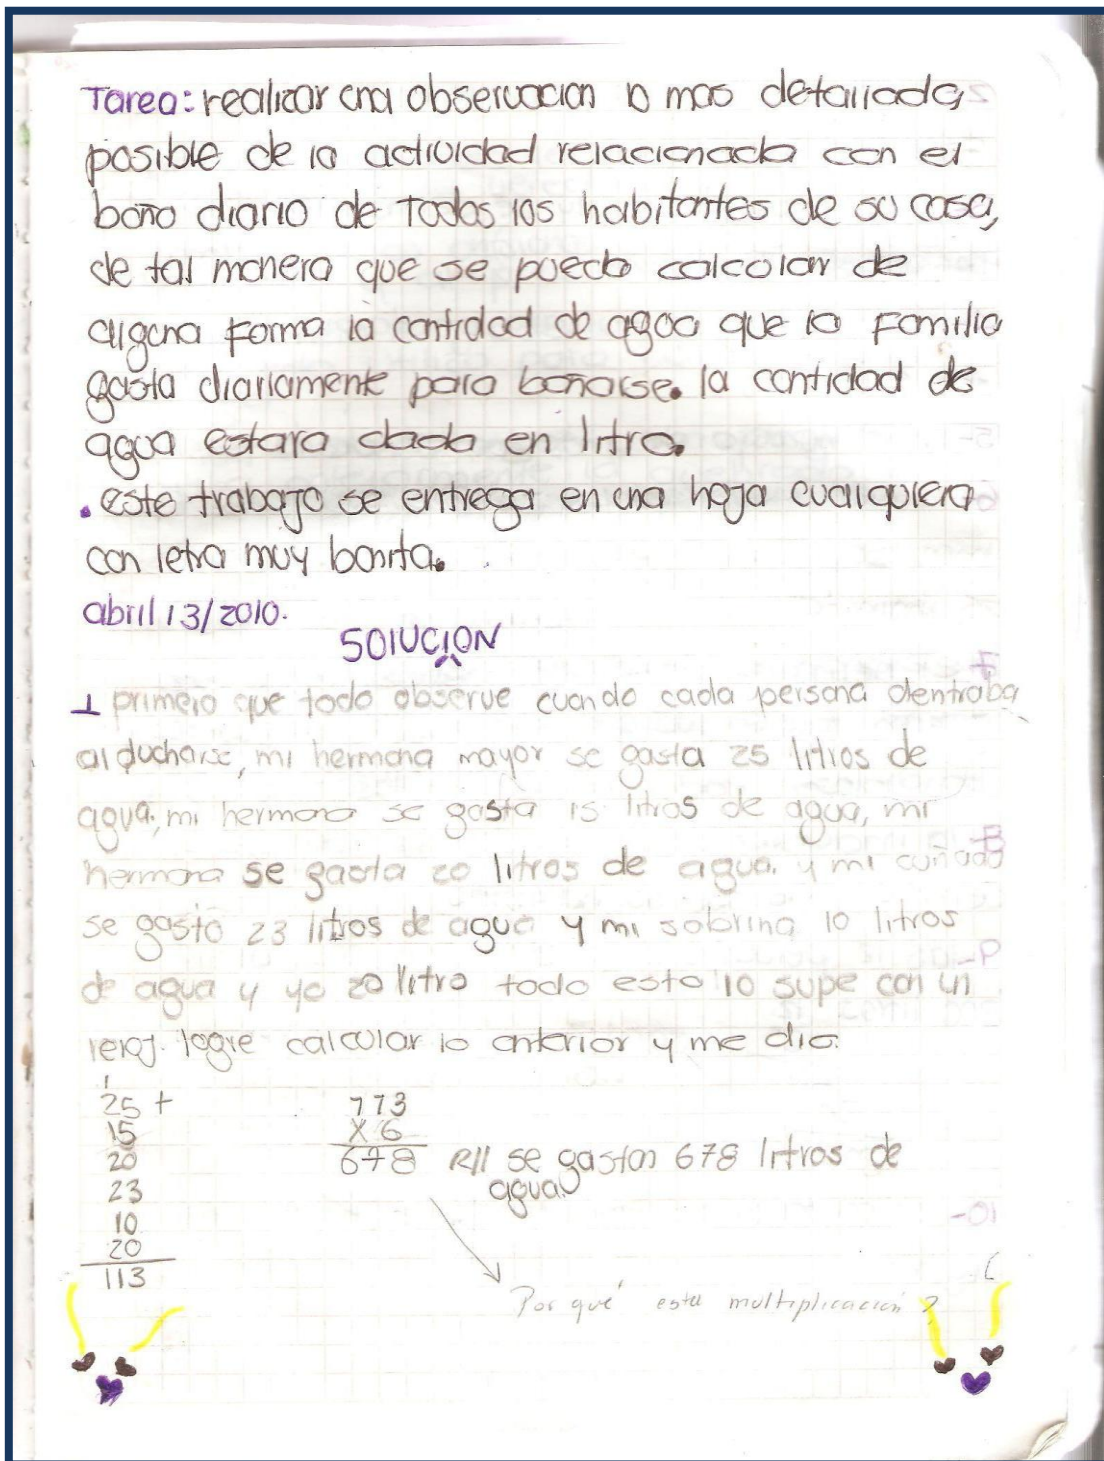 Tarea: realizar una observacion lo mas detallada
posible de la actividad relacionada con el
baño diario de todos los habitantes de su casa,
de tal manera que se pueda calcolar de
alguna forma la cantidad de agua que la familia
gasta diariamente para bañarse. la cantidad de
agua estara dada en litro.
. este trabajo se entrega en una hoja cualquiera
con letra muy bonita.
abril 13/2010.
SOlUCION
1 primero que todo observe cuando cada persona dentraba
al ducharse, mi hermana mayor se gasta 25 litros de
agua, mi hermano se gasta 15 litros de agua, mi
hermana se gasta 20 litros de agua. y mi cuñado
se gasto 23 litros de agua y mi sobrina 10 litros
de agua y yo 20 litro todo esto lo supe con un
reloj. logre calcular lo anterior y me dio.
1
25 +
15
20
23
10
20
113
113
X 6
678 R// se gastan 678 litros de
agua.
Por qué esta multiplicación ?